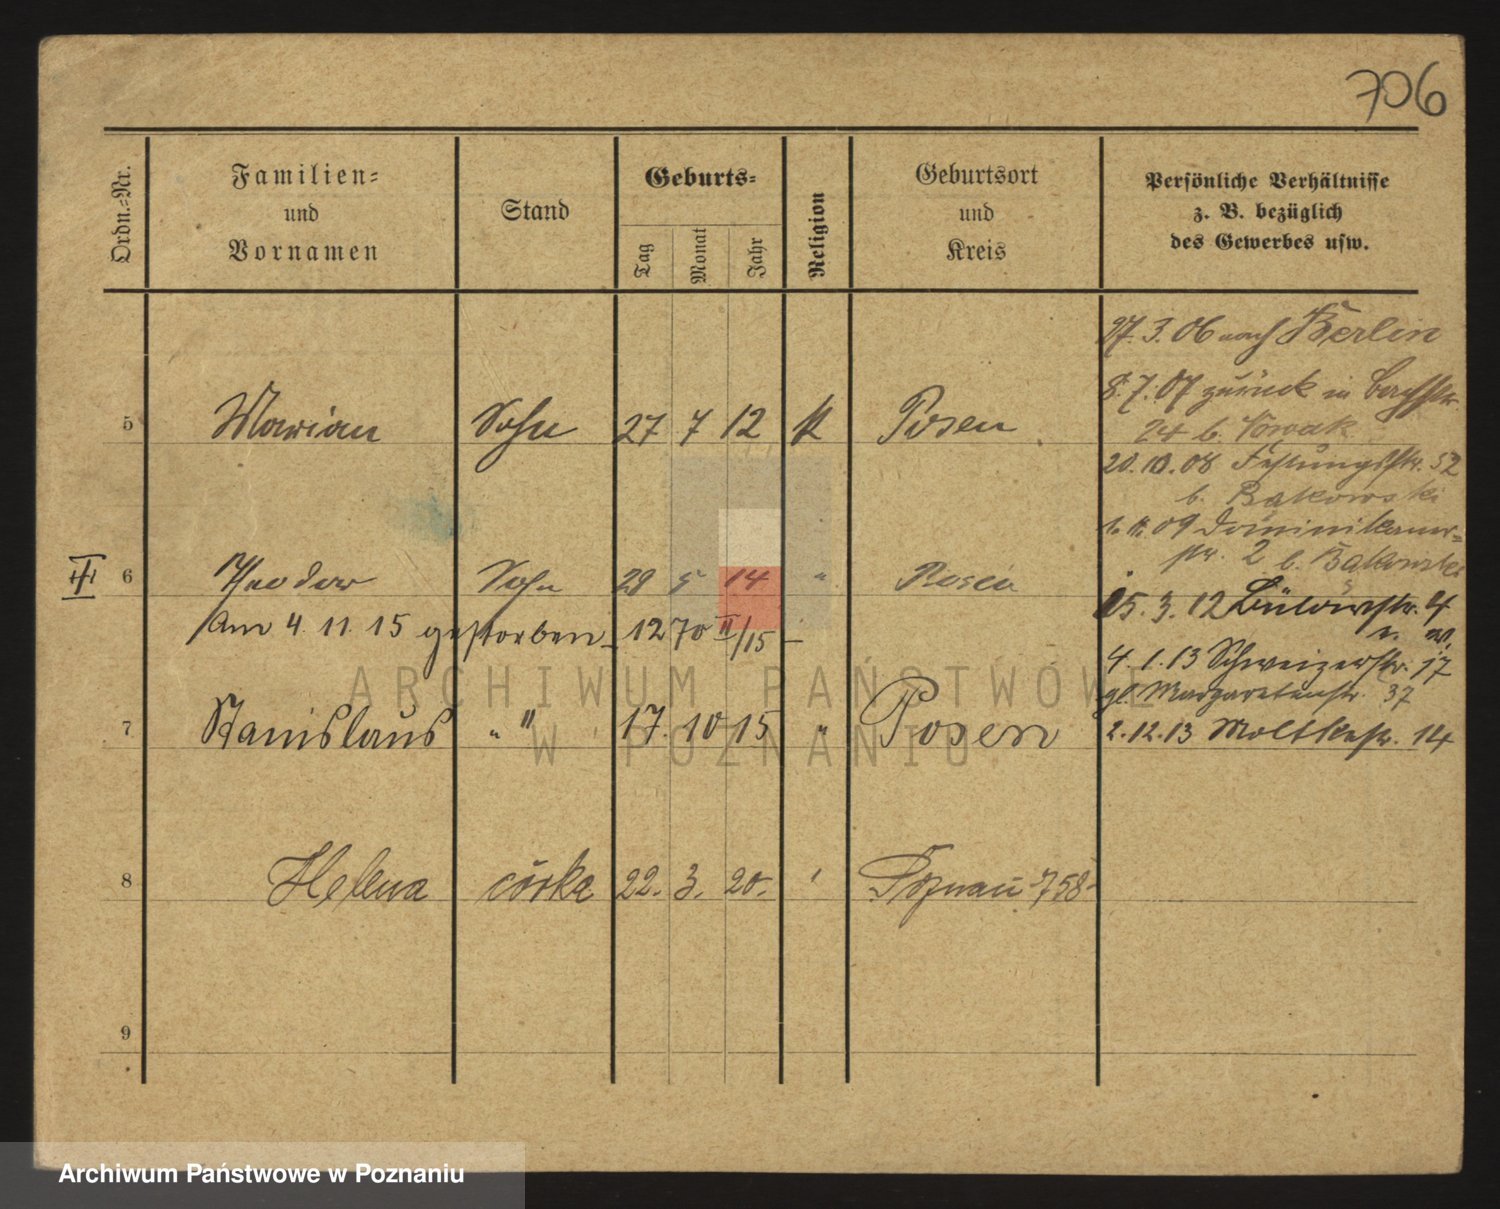 706
Ordn.-Nr.
Familien-
und
Vornamen
Stand
Geburts-
Tag
Monat
Jahr
Religion
Geburtsort
und
Kreis
Persönliche Verhältnisse
z. B. bezüglich
des Gewerbes usw.
27. 3. 06 nach Berlin
8. 7. 07 zurück in
24 b. Nowak
20. 10. 08 Festungsstr. 52
b. Bąkowski
09 Dominikaner-
str. 2 b. Bąkowski
15. 3. 12 Bülowstr. 4
4. 1. 13 Schweizerstr. 17
gl. Margaretenstr. 37
2. 12. 13 Moltkestr. 14
5 Marian Sohn 27 7 12 k Posen
III 6 Theodor Sohn 28 5 14 " Posen
Am 4. 11. 15 gestorben – 1270 II/15 –
7 Stanislaus " " 17. 10 15 " Posen
8 Helena córka 22. 3. 20. ' Poznań 758-
9
ARCHIWUM PAŃSTWOWE
W POZNANIU
Archiwum Państwowe w Poznaniu